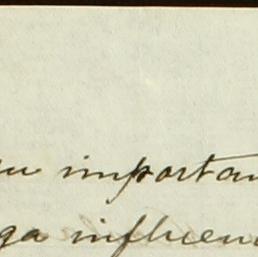 su importan
ga influen